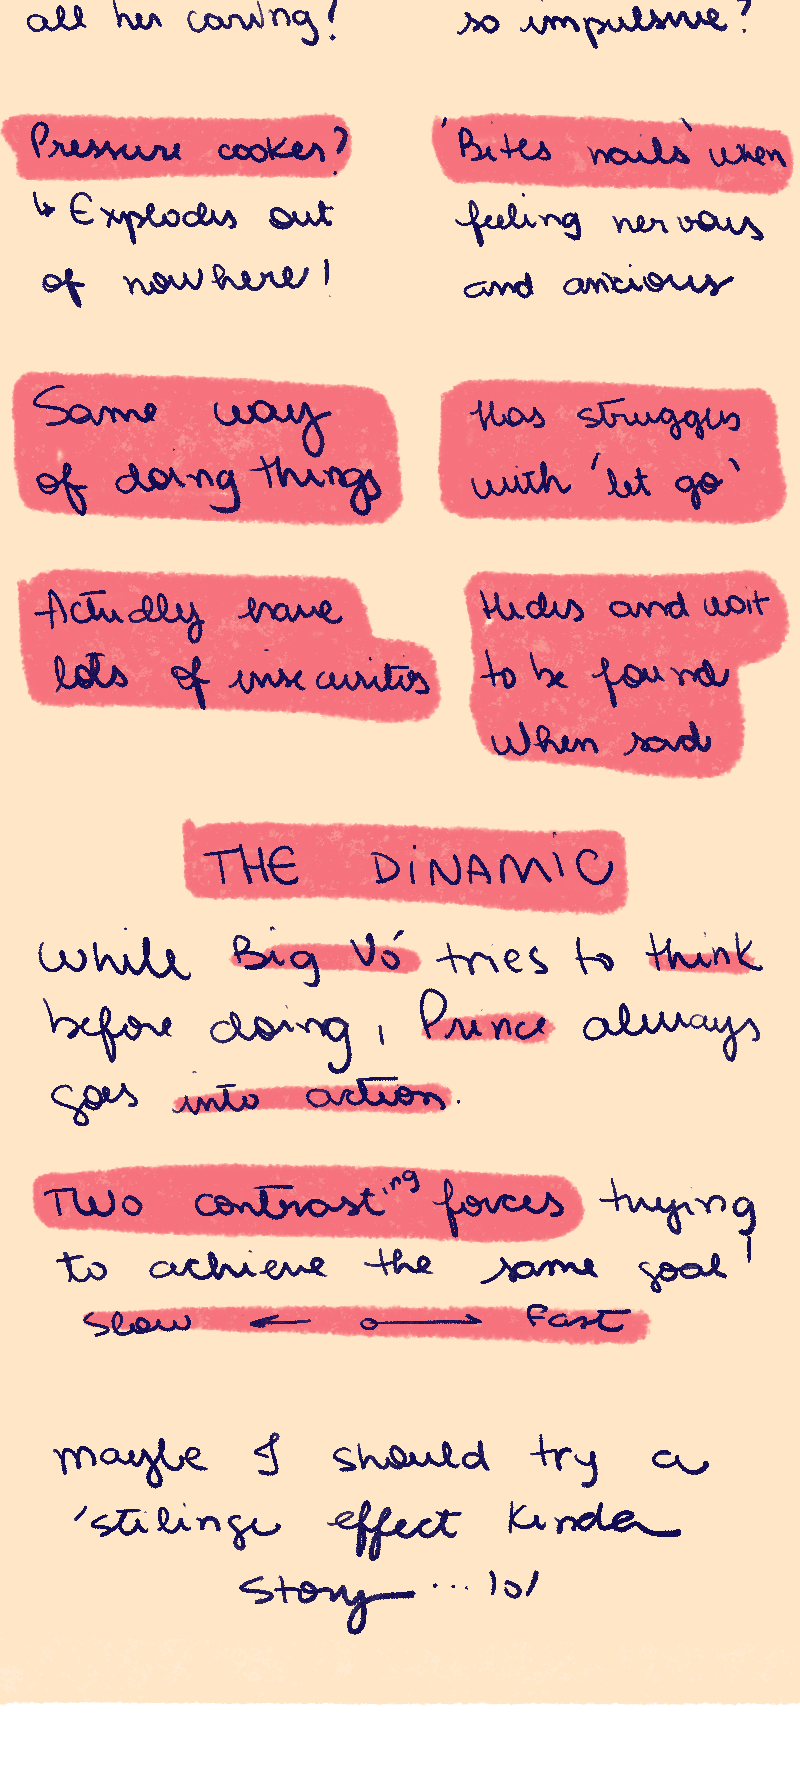 all her caring!
Pressure cooker?
↳ Explodes out
of nowhere!
Same way
of doing things
Actually have
lots of insecurities
so impulsive?
'Bites nails' when
feeling nervous
and anxious
Has struggles
with 'let go'
Hides and wait
to be found
when sad
THE DiNAMiC
While Big Vó tries to think
before doing, Prince always
goes into action.
Two contrasting forces trying
to achieve the same goal!
Slow ← o→ Fast
maybe I should try a
'stilinge effect kinda
story ... lol